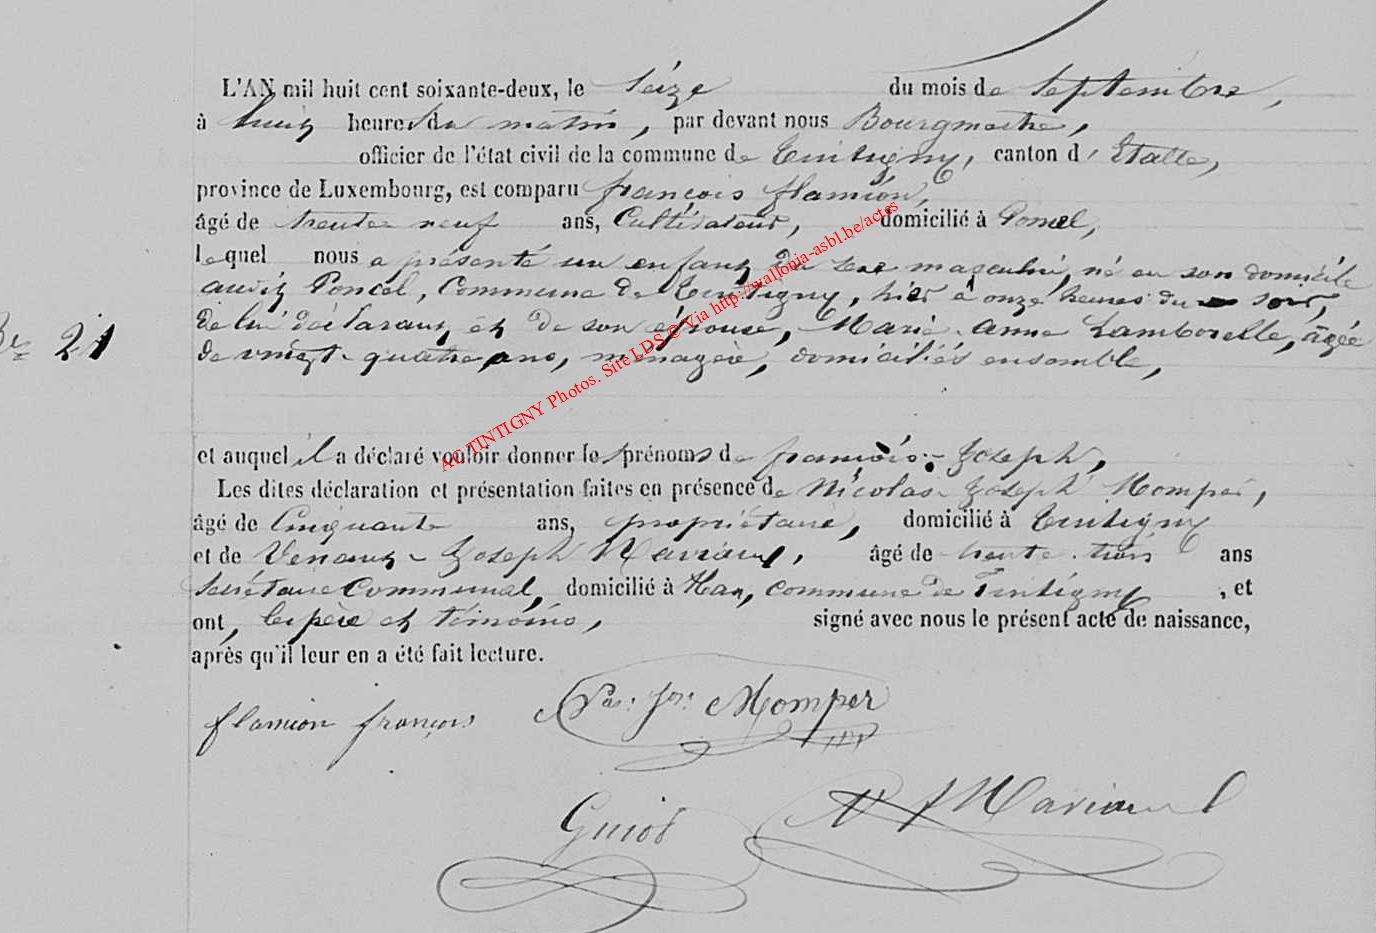 L'AN mil huit cent soixante-deux, le Seize du mois de Septembre,
à huit heures du matin, par devant nous Bourgmestre,
officier de l'état civil de la commune de Tintigny, canton d'Etalle,
province de Luxembourg, est comparu françois flamion,
âgé de trente neuf ans, Cultivateur, domicilié à Poncel,
lequel nous a présenté un enfant du sexe masculin, né en son domicile
audit Poncel, Commune de Tintigny, hier à onze heures du soir,
de lui déclarant et de son épouse, Marie-Anne Lamborelle, âgée
21
de vingt-quatre ans, ménagère, domiciliés ensemble,
et auquel il a déclaré vouloir donner les prénoms de françois-Joseph,
Les dites déclaration et présentation faites en présence de Nicolas-Joseph Momper,
âgé de Cinquante ans, propriétaire, domicilié à Tintigny
et de Venant-Joseph Maviaux, âgé de trente-trois ans
Secrétaire Communal, domicilié à Han, commune de Tintigny, et
ont, les père et témoins, signé avec nous le présent acte de naissance,
après qu'il leur en a été fait lecture.
flamion françois
Momper
Guiot
AC TINTIGNY Photos. Site LDS © Via http://wallonia-asbl.be/actes